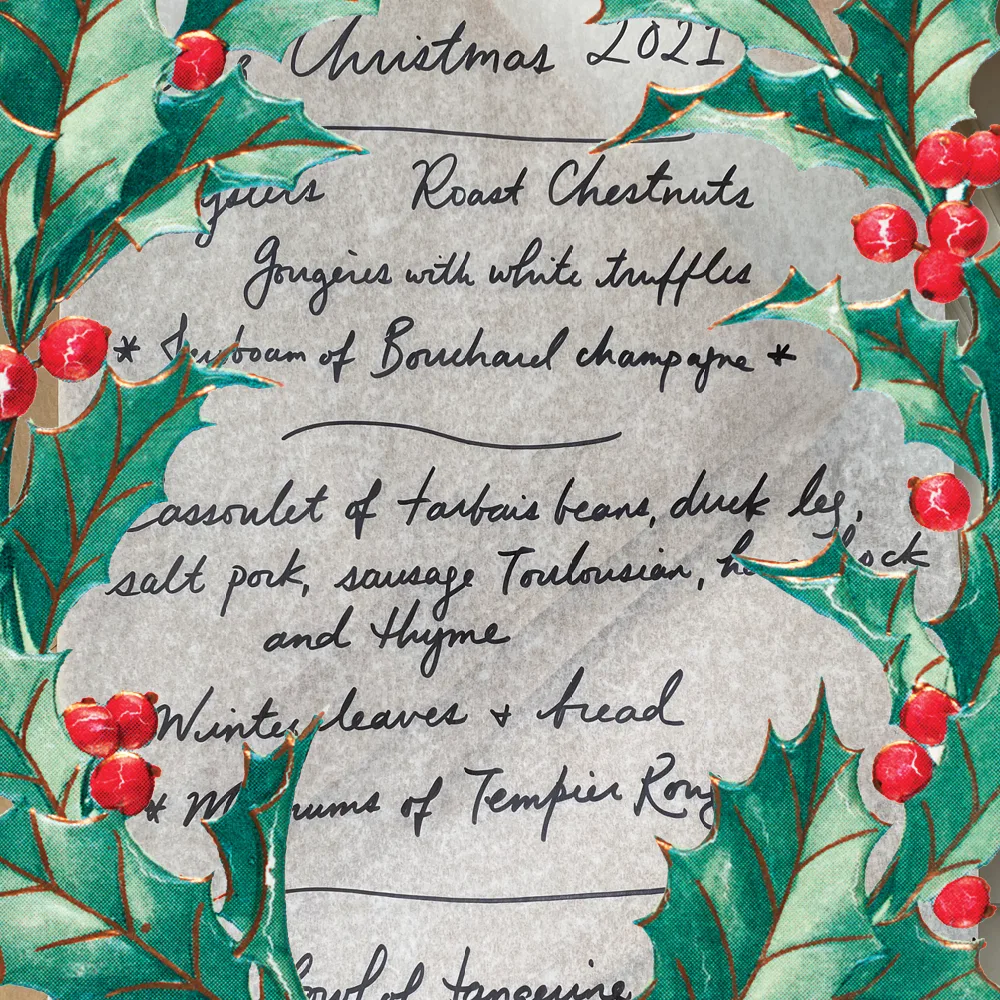 Christmas 2021
Roast Chestnuts
Gougères with white truffles
* Jeroboam of Bouchard champagne *
assoulet of tarbais beans, duck leg,
salt pork, sausage Toulousian,
and thyme
Winter leaves + bread
* of Tempier
of tangerine